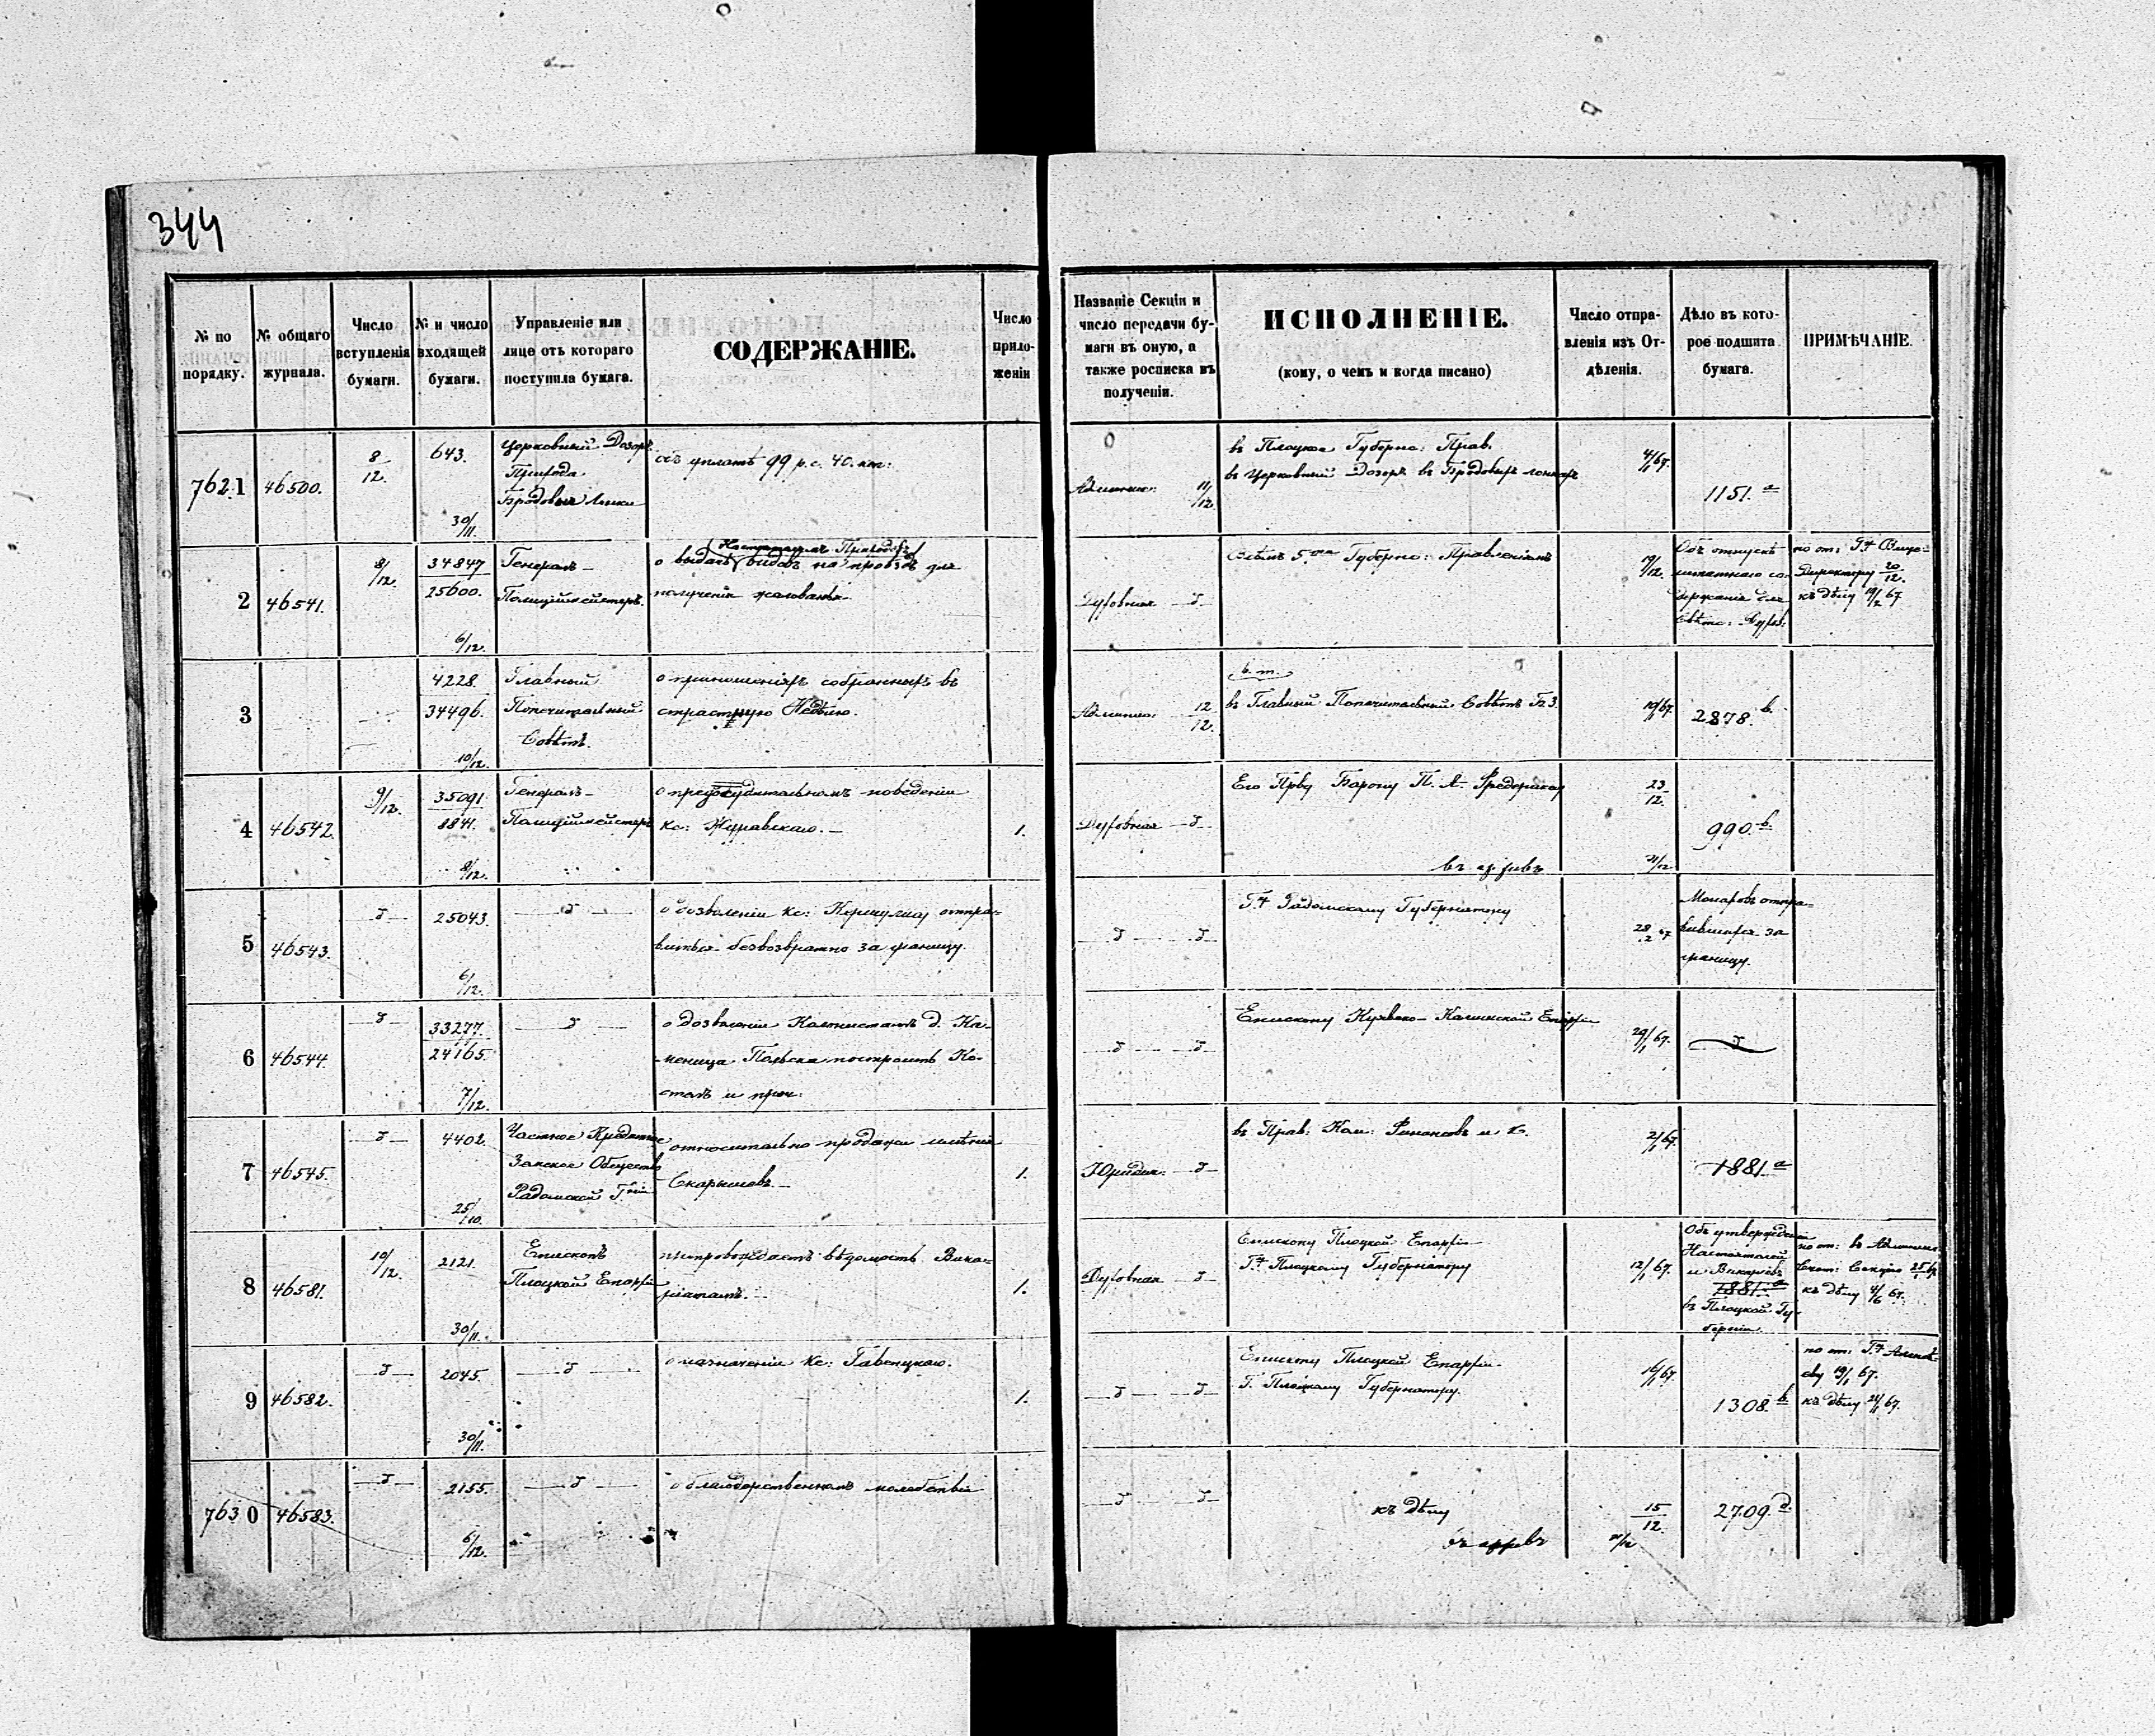 344
№ по порядку.
№ общаго журнала.
Число вступленія бумаги.
№ и число входящей бумаги.
Управленіе или лице отъ котораго поступила бумага.
СОДЕРЖАНІЕ.
Число приложеній
Названіе Секціи и число передачи бумаги въ оную, а также росписка въ полученіи.
ИСПОЛНЕНІЕ.
(кому, о чемъ и когда писано)
Число отправленія изъ Отдѣленія.
Дѣло въ которое подшита бумага.
ПРИМѢЧАНІЕ.
7621
46500.
8/12.
643.
30/11.
Церковный Дозоръ
Прихода
объ уплатѣ 99 р. с. 40. коп:
11/12.
въ Плоцкое Губернс: Прав.
въ Церковный Дозоръ въ
4/1 67.
1151. а
2
46541.
8/12.
34847
25600.
6/12.
Генералъ-
Полиціймейстеръ.
о выдачѣ видовъ на проѣздъ для
Настоятелямъ Приходовъ
полученія жалованья
Духовная - d -
Всѣмъ 5 ти Губернс: Правленіямъ
19/12.
Объ отпускѣ
штатнаго со-
держанія для
Свѣтс: Духов:
по от: Г. Вице-
Директору 20/12.
къ дѣлу 19/2 67
3
4228.
34496.
10/12.
Главный
Попечительный
Совѣтъ.
о приношеніяхъ собранныхъ въ
страстную Недѣлю.
12/12.
в. т.
въ Главный Попечительный Совѣтъ
10/1 67.
2878. b.
4
46542.
9/12.
35091
8841.
8/12.
Генералъ-
Полиціймейстеръ
о предосудительномъ поведеніи
кс: Журавскаго. -
1.
Духовная - d -
Его Прву Барону П. А. Фредериксу
въ архивъ
23/12.
31/12
990. b.
5
46543.
- d -
25043
6/12.
- d -
о дозволеніи кс: отпра-
виться безвозвратно за границу.
- d - - d -
Г. Радомскому Губернатору
28/2 67
Монаховъ отпра-
вившихся за
границу.
6
46544.
- d -
33277.
24165.
7/12.
- d -
о дозволеніи Колонистамъ д. Ка-
меница Польска построить Ко-
стелъ и проч:
- d - - d -
Епископу Куявско-Калишской Епархіи
29/1 67.
- d -
7
46545.
- d -
4402.
25/10.
Частное Кредитное
Земское Общество
Радомской Г ніи
относительно продажи имѣнія
1.
Юридич: - d -
въ Прав: Ком: Финансовъ и. К.
2/1 67.
1881 а
8
46581.
10/12.
2121.
30/11.
Епископъ
Плоцкой Епархіи
препровождаетъ вѣдомость Вика-
ріатамъ. -
1.
Духовная - d -
Епископу Плоцкой Епархіи
Г. Плоцкому Губернатору
12/1 67.
Объ утвержденіи
Настоятелей
и Викаріевъ
1881. а
въ Плоцкой Гу-
берніи.
по от: въ
Счет: Секцію
къ дѣлу 4/6 67.
9
46582.
- d -
2045.
30/11.
- d -
о назначеніи кс: Гавенцкаго.
1.
- d - - d -
Епископу Плоцкой Епархіи
Г. Плоцкому Губернатору.
16/1 67.
1308. b.
по от: Г.
19/1 67.
къ дѣлу 24/1 67.
7630
46583.
- d -
2155.
6/12.
- d -
о благодарственномъ молебствіи
- d - - d -
къ дѣлу
въ архивъ
15/12.
31/12
2709. d.